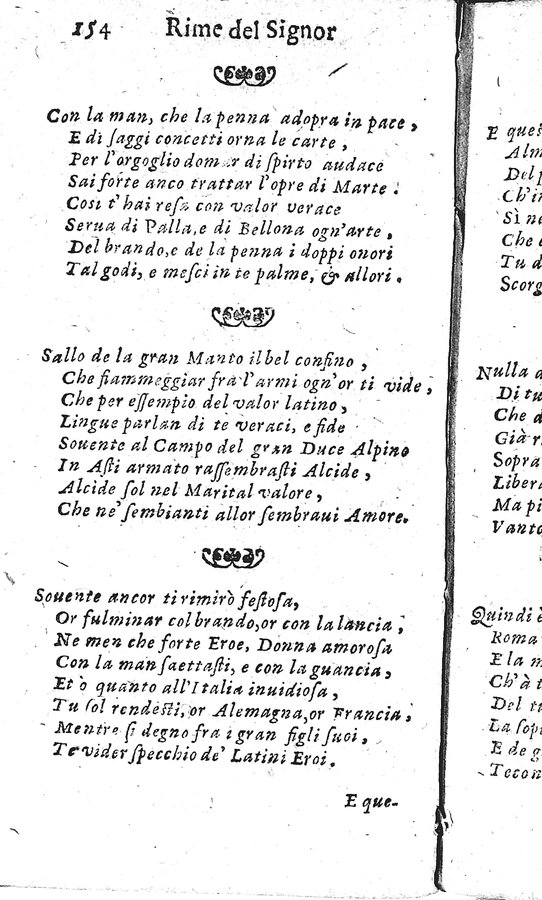 154 Rime del Signor
Con la man, che la penna adopra in pace,
E di ſaggi concetti orna le carte,
Per l'orgoglio domar di ſpirto audace
Sai forte anco trattar l'opre di Marte:
Cosi t'hai reſa con valor verace
Serua di Palla, e di Bellona ogn'arte,
Del brando, e de la penna i doppi onori
Tal godi, e meſci in te palme, & allori.
Sallo de la gran Manto il bel confino,
Che fiammeggiar fra l'armi ogn'or ti vide,
Che per eſſempio del valor latino,
Lingue parlan di te veraci, e fide
Souente al Campo del gran Duce Alpino
In Aſti armato raſſembraſti Alcide,
Alcide ſol nel Marital valore,
Che ne' ſembianti allor ſembraui Amore.
Souente ancor ti rimirò feſtoſa,
Or fulminar col brando, or con la lancia,
Ne men che forte Eroe, Donna amoroſa
Con la man ſaettaſti, e con la guancia,
Et ò quanto all'Italia inuidioſa,
Tu ſol rendeſti, or Alemagna, or Francia,
Mentre ſi degno fra i gran figli ſuoi,
Te vider ſpecchio de' Latini Eroi.
E que-
E queſ
Alm
Del
Ch'i
Sì n
Che
Tu d
Scorg
Nulla
Di tu
Che
Già r
Sopra
Libera
Ma pi
Vanto
Quindi è
Roma
E la m
Ch'à t
Del t
La ſop
E de g
Tecon